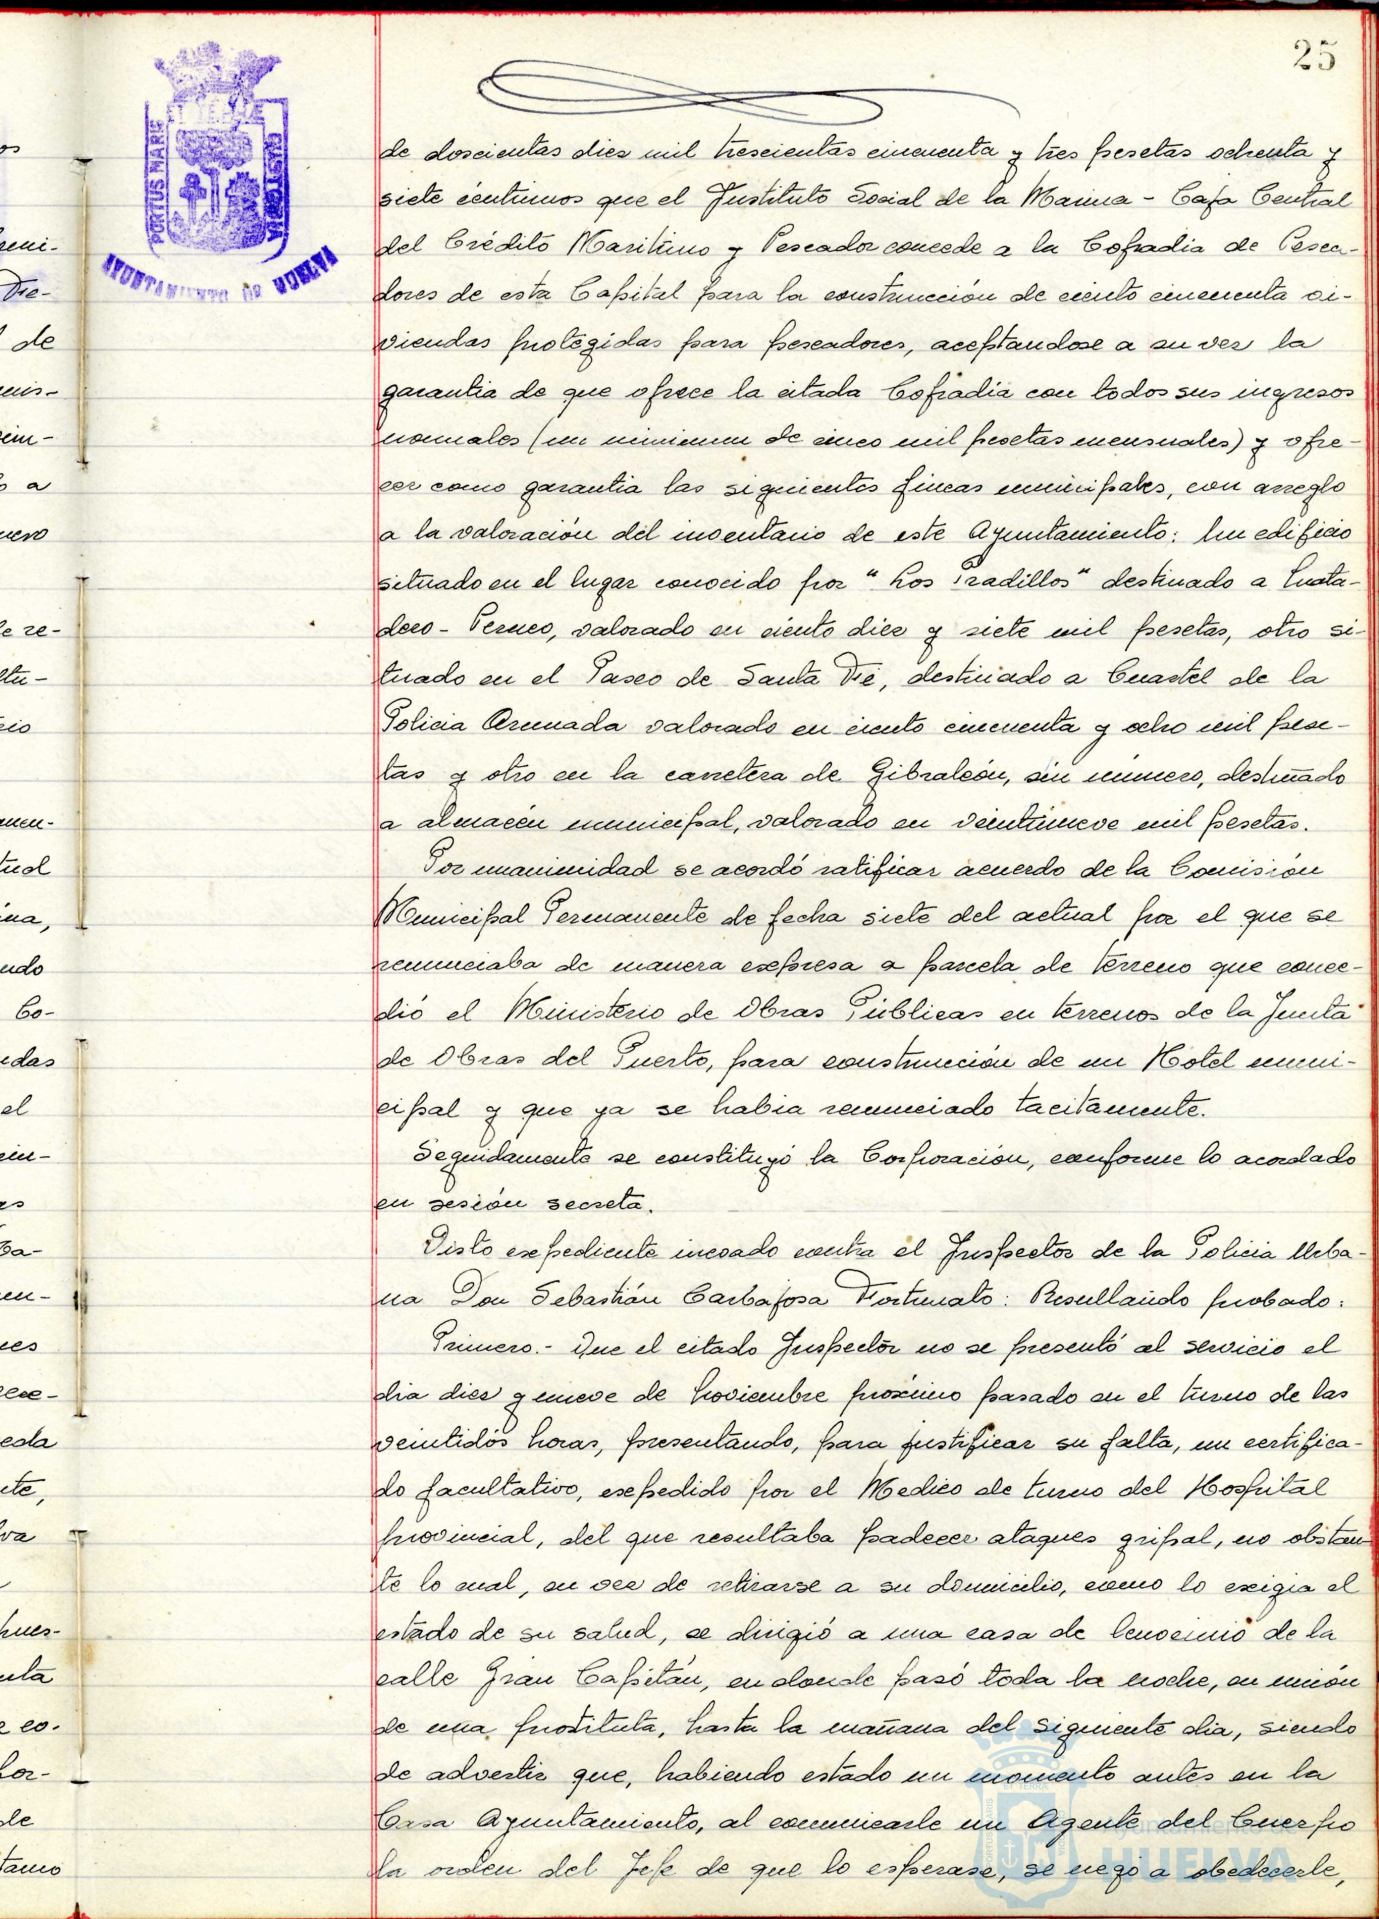 25
PORTUS MARIS ET TERRAE CUSTODIA
AYUNTAMIENTO DE HUELVA
de doscientas diez mil trescientas cincuenta y tres pesetas ochenta y
siete céntimos que el Instituto Social de la Marina - Caja Central
del Crédito Maritimo y Pescador concede a la Cofradia de Pesca-
dores de esta Capital para la construcción de ciento cincuenta vi-
viendas protegidas para pescadores, aceptandose a su vez la
garantia de que ofrece la citada Cofradia con todos sus ingresos
normales (un minimun de cinco mil pesetas mensuales) y ofre-
cer como garantia las siguientes fincas municipales, con arreglo
a la valoración del inventario de este Ayuntamiento: Un edificio
situado en el lugar conocido por "Los Pradillos" destinado a Mata-
dero-Porcino, valorado en ciento diez y siete mil pesetas, otro si-
tuado en el Paseo de Santa Fé, destinado a Cuartel de la
Policia Armada valorado en ciento cincuenta y ocho mil pese-
tas y otro en la carretera de Gibraleón, sin número, destinado
a almacén municipal, valorado en veintinueve mil pesetas.
Por unanimidad se acordó ratificar acuerdo de la Comisión
Municipal Permanente de fecha siete del actual por el que se
renunciaba de manera expresa a parcela de terreno que conce-
dió el Ministerio de Obras Públicas en terrenos de la Junta
de Obras del Puerto, para construcción de un Hotel muni-
cipal y que ya se habia renunciado tacitamente.
Seguidamente se constituyó la Corporación, conforme lo acordado
en sesión secreta.
Visto expediente incoado contra el Inspector de la Policia Urba-
na Don Sebastián Carbajosa Fortunato: Resultando probado:
Primero.- Que el citado Inspector no se presentó al servicio el
dia diez y nueve de Noviembre próximo pasado en el turno de las
veintidós horas, presentando, para justificar su falta, un certifica-
do facultativo, expedido por el Medico de turno del Hospital
provincial, del que resultaba padecer ataques gripal, no obstan-
te lo cual, en vez de retirarse a su domicilio, como lo exigia el
estado de su salud, se dirigió a una casa de lenocinio de la
calle Gran Capitán, en donde pasó toda la noche, en unión
de una prostituta, hasta la mañana del siguiente dia, siendo
de advertir que, habiendo estado un momento antes en la
Casa Ayuntamiento, al comunicarle un Agente del Cuerpo
la orden del Jefe de que lo esperase, se negó a obedecerle,
Ayuntamiento de
HUELVA